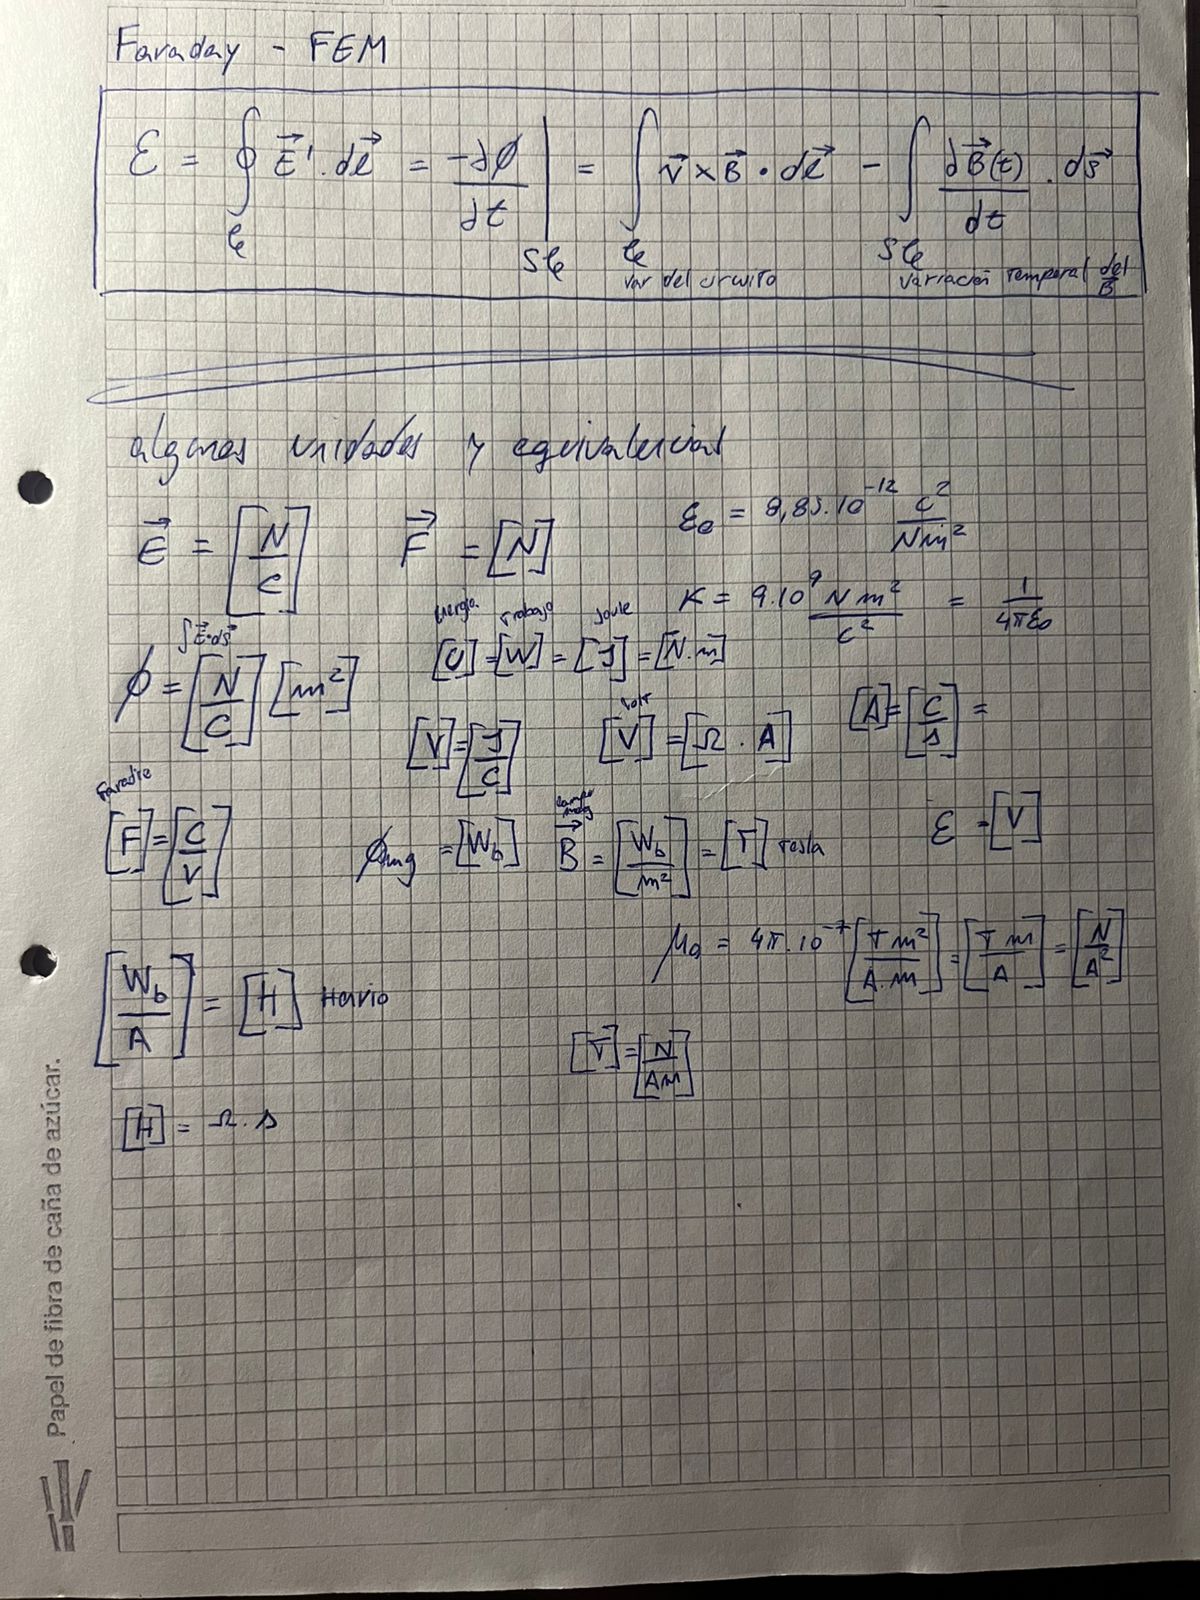 Faraday - FEM
Ɛ = ∮_𝒞 E⃗'. dl⃗ = -dϕ/dt |_S𝒞 = ∫_𝒞 v⃗ × B⃗ • dl⃗ - ∫_S𝒞 dB⃗(t)/dt . ds⃗
var del circuito variación temporal del B
algunas unidades y equivalencias
E⃗ = [N/C] F⃗ = [N] ε₀ = 8,85.10⁻¹² C²/Nm²
K = 9.10⁹ N m²/C² = 1/4πε₀
Energía Trabajo Joule
[U] = [W] = [J] = [N.m]
∫E⃗•ds⃗
ϕ = [N/C] [m²]
volt
[V] = [J/C] [V] = [Ω . A] [A] = [C/s] =
Faradio
[F] = [C/V]
campo mag
ϕmg = [Wb] B⃗ = [Wb/m²] = [T] Tesla Ɛ = [V]
μ₀ = 4π.10⁻⁷ [T m²/A.m] = [T m/A] = [N/A²]
[Wb/A] = [H] Henrio
[T] = [N/Am]
[H] = Ω.s
Papel de fibra de caña de azúcar.